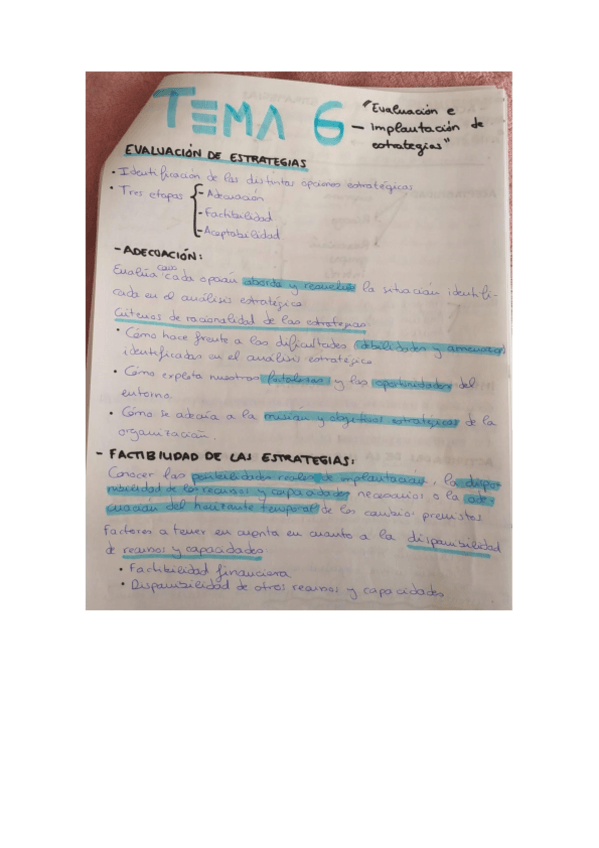 TEMA 6 – "Evaluación e
Implantación de
estrategias"
EVALUACIÓN DE ESTRATEGIAS
• Identificación de las distintas opciones estratégicas
• Tres etapas { - Adecuación
- Factibilidad
- Aceptabilidad
- ADECUACIÓN:
Evalúa como cada opción aborda y resuelve la situación identifi-
cada en el análisis estratégico.
Criterios de racionalidad de las estrategias:
• Cómo hace frente a las dificultades (debilidades y amenazas)
identificadas en el análisis estratégico
• Cómo explota nuestras fortalezas y las oportunidades del
entorno.
• Cómo se adecúa a la misión y objetivos estratégicos de la
organización.
- FACTIBILIDAD DE LAS ESTRATEGIAS:
Conocer las posibilidades reales de implantación, la dispo-
nibilidad de los recursos y capacidades necesarios o la ade-
cuación del horizonte temporal de los cambios previstos
Factores a tener en cuenta en cuanto a la disponibilidad
de recursos y capacidades
• Factibilidad financiera
• Disponibilidad de otros recursos y capacidades